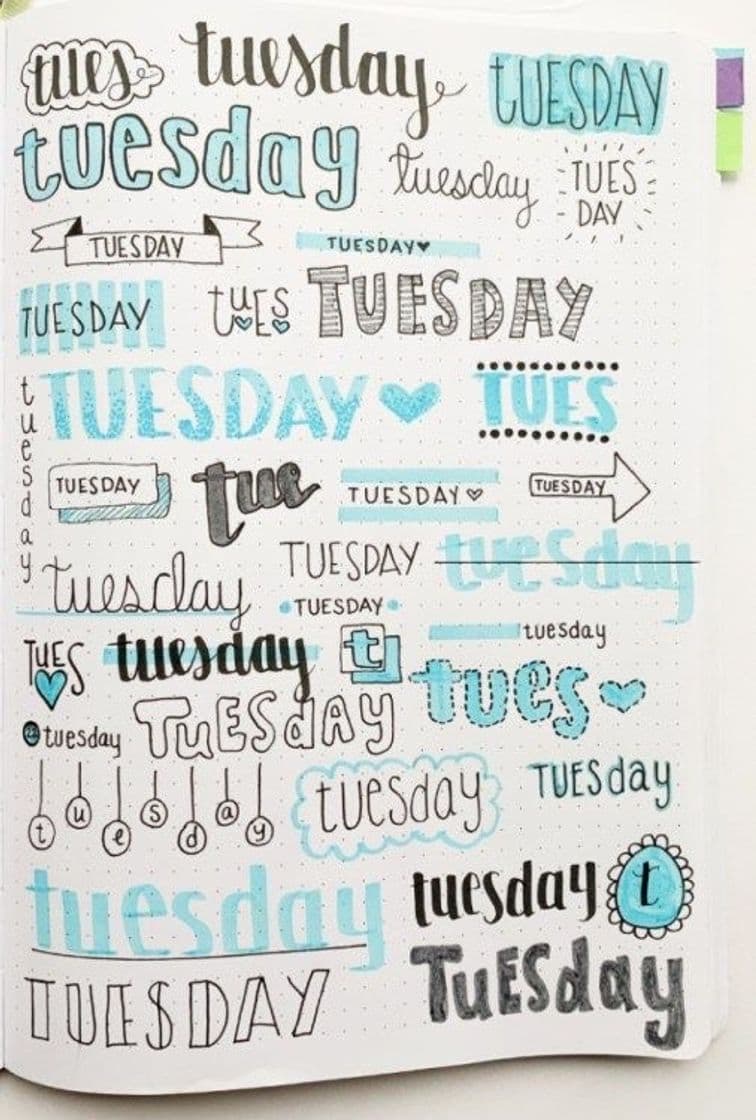 tues tuesday TUESDAY
tuesday tuesday TUES
DAY
TUESDAY TUESDAY♥
TUESDAY tUES TUESDAY
tuesday
TUESDAY TUES
TUESDAY tue TUESDAY♡ TUESDAY
tuesday TUESDAY tuesday
TUESDAY
TUES tuesday t tuesday
tuesday TUESdAY tues
tuesday tuesday TUESday
tuesday tuesday t
TUESDAY TuESday